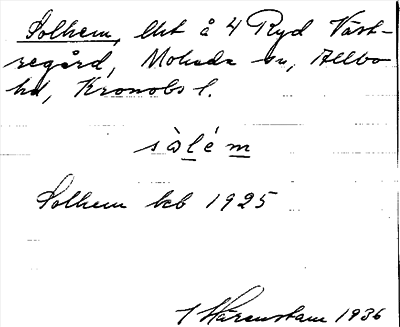 Solhem, lht å 4 Ryd Väst-
regård, Moheda sn, Allbo
hd, Kronobs l.
sàlém
Solhem kb 1925
Härenstam 1936